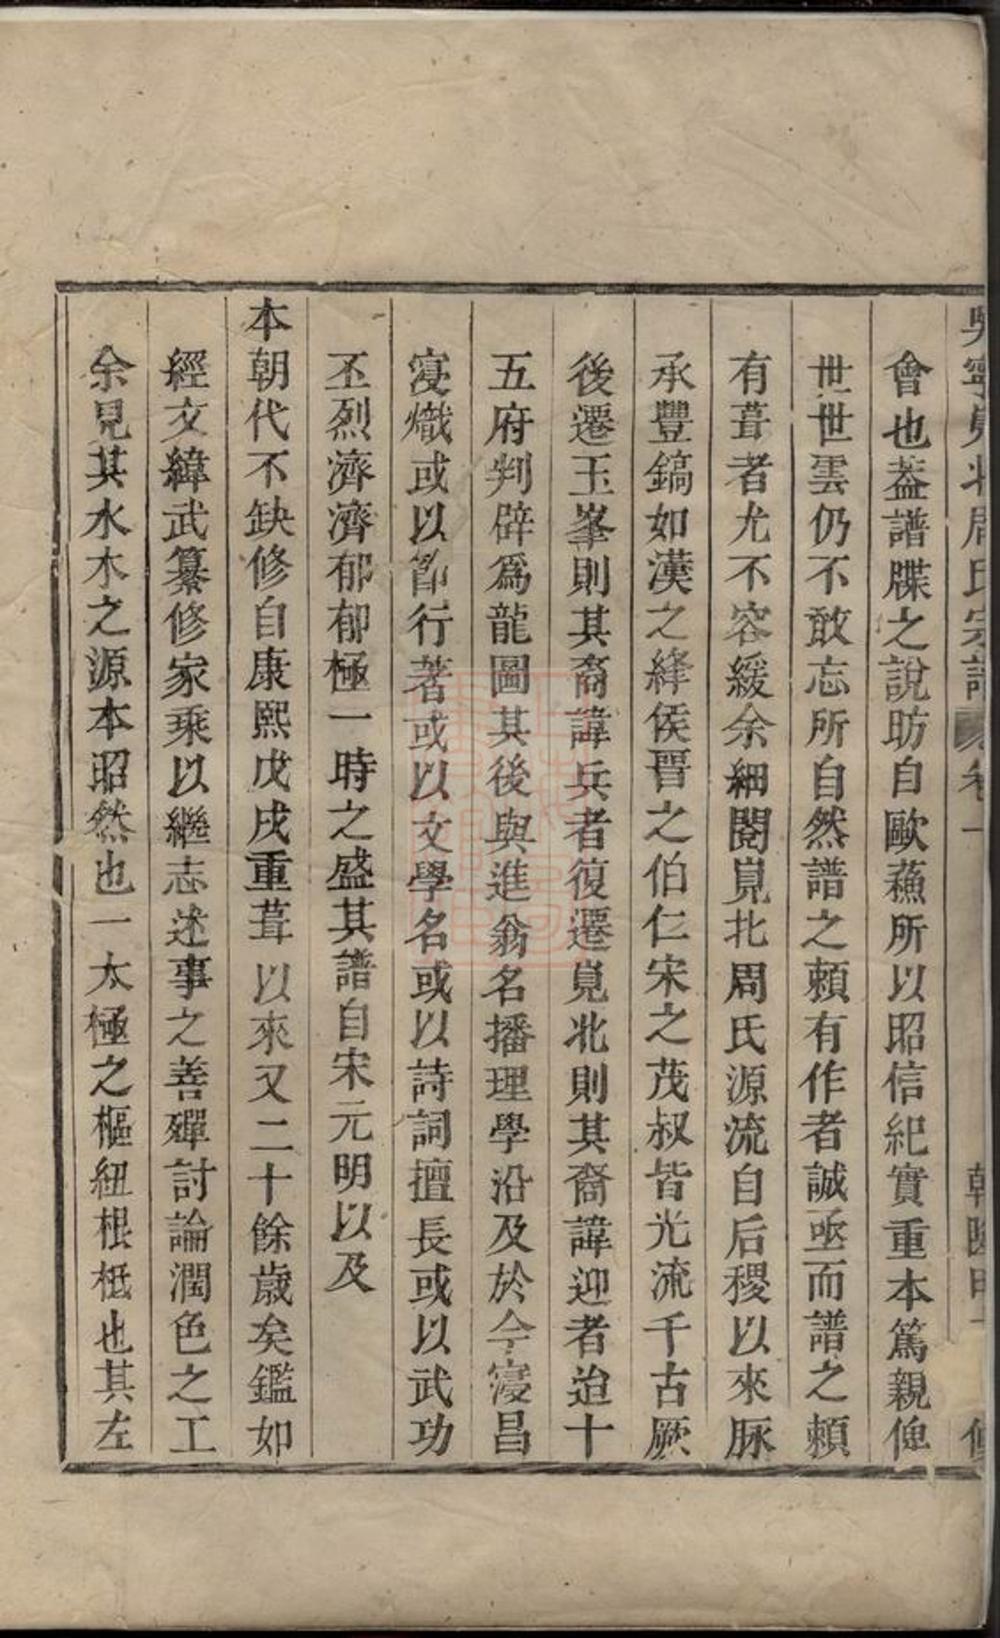 會也葢譜牒之說昉自歐蘓所以昭信紀實重本篤親俾
世世雲仍不敢忘所自然譜之賴有作者誠亟而譜之賴
有葺者尤不容緩余細閱峴北周氏源流自后稷以來脉
承豐鎬如漢之絳侯晋之伯仁宋之茂叔皆光流千古厥
後遷玉峯則其裔諱兵者復遷峴北則其裔諱迎者迨十
五府判辟為龍圖其後與進翁名播理學沿及於今寖昌
寖熾或以節行著或以文學名或以詩詞擅長或以武功
丕烈濟濟郁郁極一時之盛其譜自宋元明以及
本朝代不缺修自康熙戊戌重葺以來又二十餘歲矣鑑如
經文緯武纂修家乘以繼志述事之善殫討論潤色之工
余見其水木之源本昭然也一太極之樞紐根柢也其左